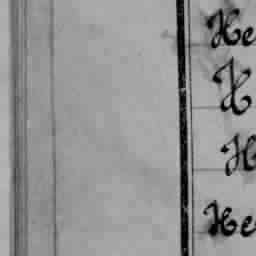 He
H
H
He